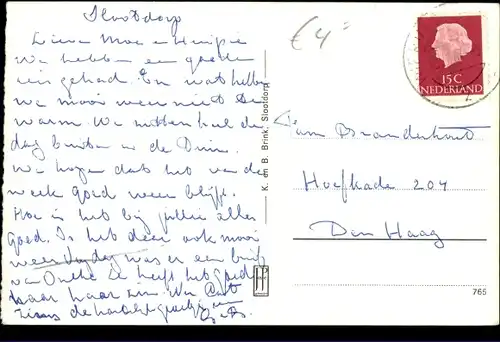 Slootdorp
Lieve Moe en
We hebben een goede
reis gehad. En wat hebben
we mooi weer niet te
warm. We zitten heel de
dag buiten in de Duin.
We hopen dat het van de
week goed weer blijft.
Hoe is het bij jullie alles
goed. Is het daar ook mooi
weer was er een brief
van heeft het goed
naar haar zin. We
de hartelijke groetjes
€ 4 =
15 C
NEDERLAND
K. en B. Brink, Slootdorp
Fam Brandenhout
Hoefkade 204
Den Haag
765